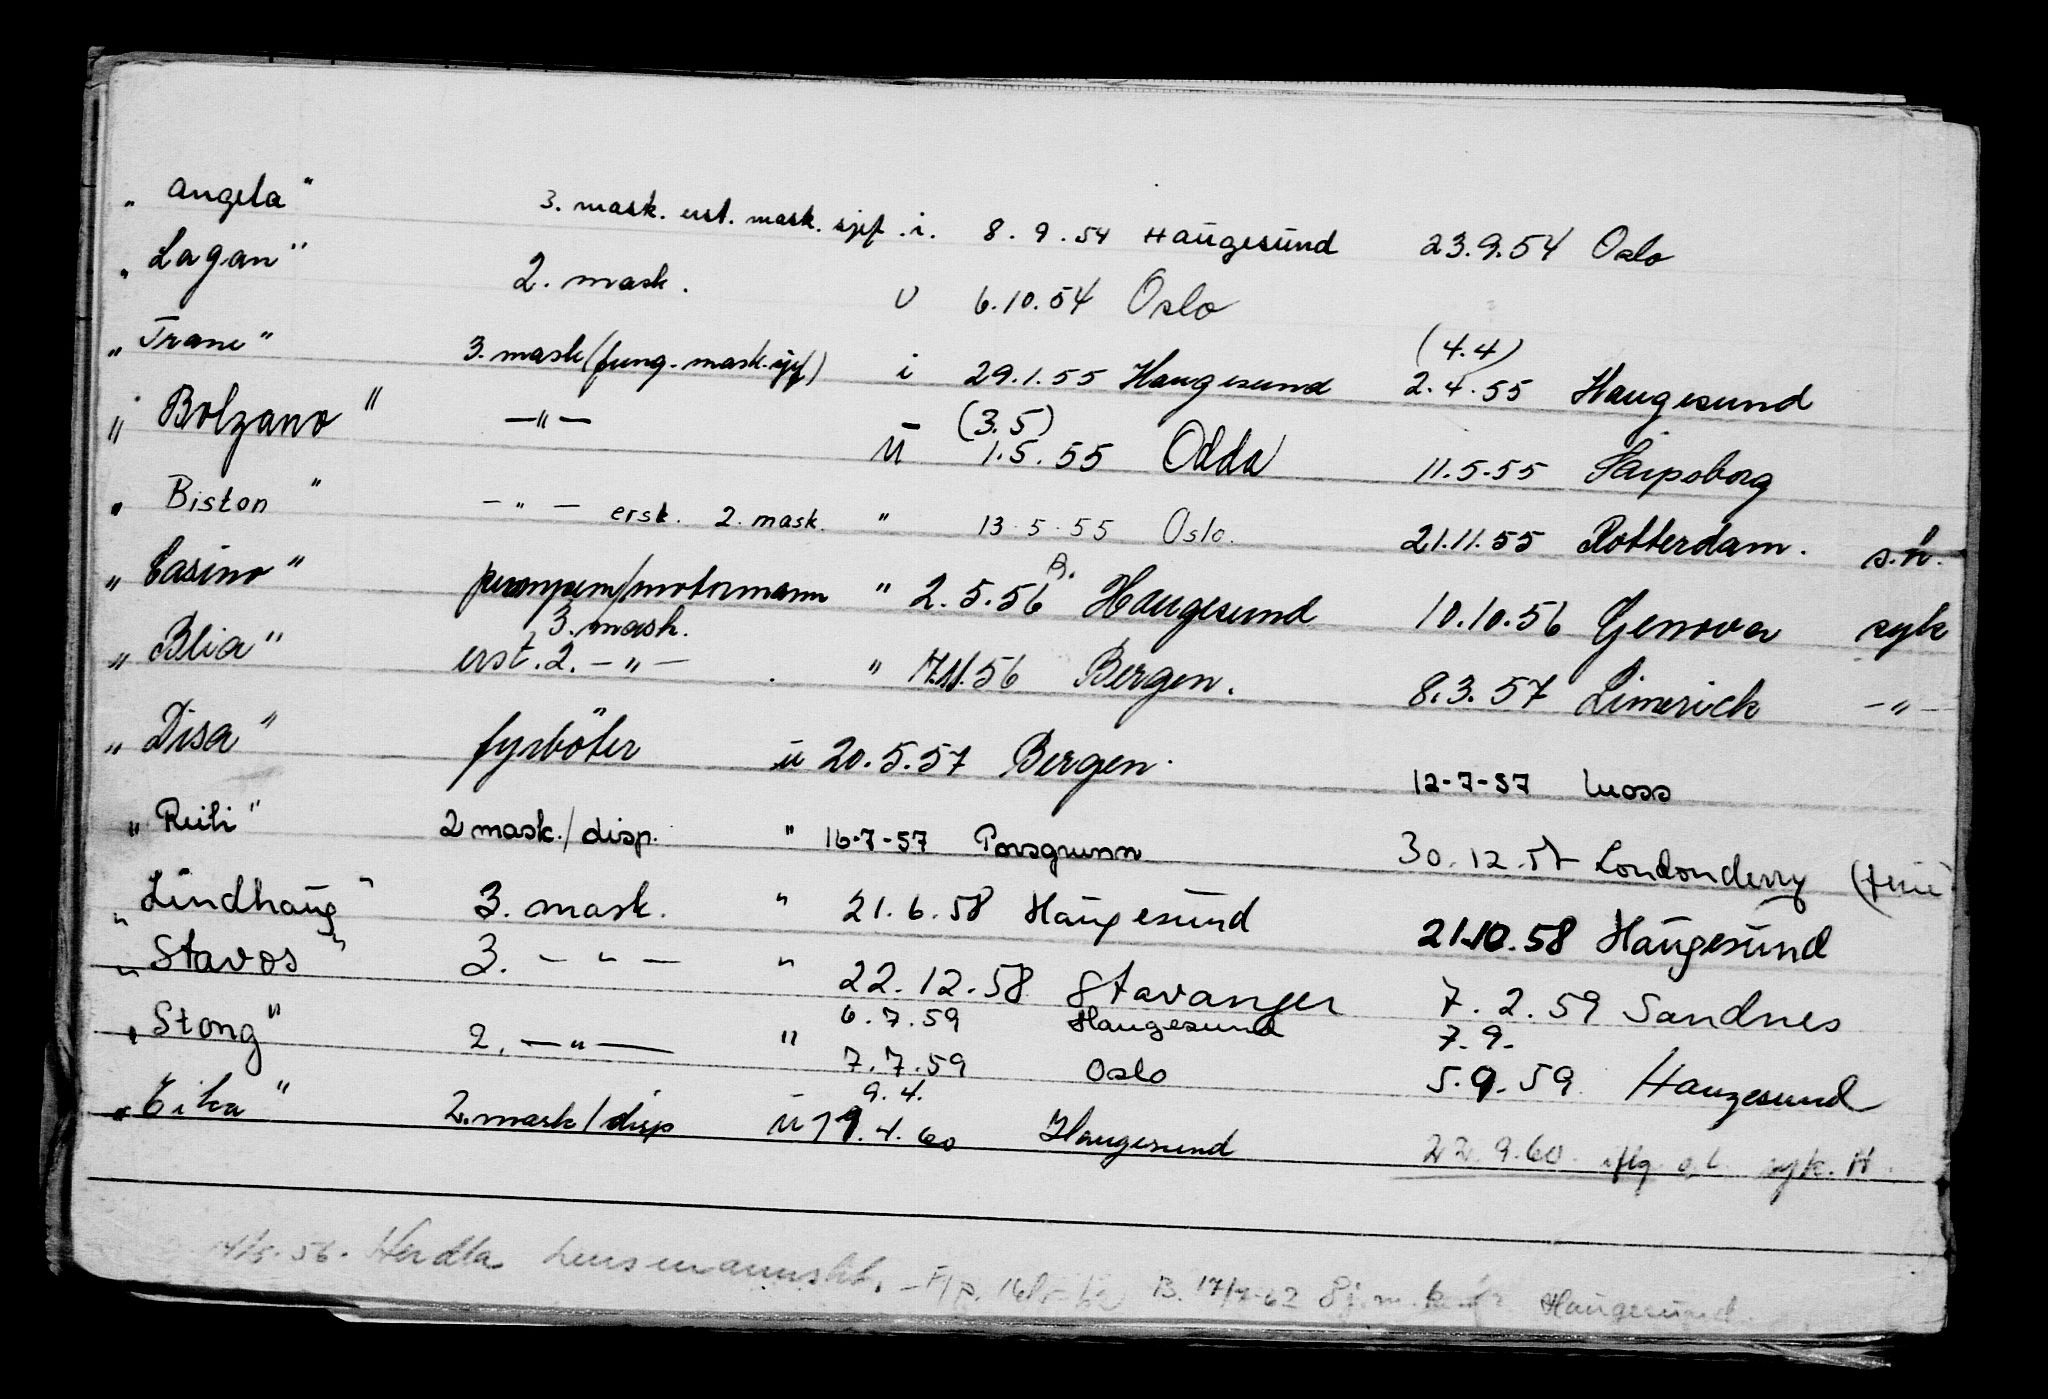 „ Angela" 3. mask. erst. mask. sjef. i. 8.9.54 Haugesund 23.9.54 Oslo
„ Lagan" 2. mask. u 6.10.54 Oslo
„ Trane" 3. mask (fung. mask. sjef) i 29.1.55 Haugesund (4.4) 2.4.55 Haugesund
„ Bolzano" —"— u (3.5) 1.5.55 Odda 11.5.55 Sarpsborg
„ Biston" —"— ersk. 2. mask. " 13.5.55 Oslo. 21.11.55 Rotterdam. s.h.
„ Casino" pumpem/motormann " 2.5.56 Haugesund 10.10.56 Genova syk
„ Blia" 3. mask. erst. 2. —"— " 7.11.56 Bergen. 8.3.57 Limerick —"—
„ Disa" fyrböter u 20.5.57 Bergen. 12-7-57 Moss
„ Reiti" 2 mask./disp. " 16-7-57 Porsgrunn 30.12.57 Londonderry
„ Lindhaug" 3. mask. " 21.6.58 Haugesund 21.10.58 Haugesund
„ Stavos" 3. —"— " 22.12.58 Stavanger 7.2.59 Sandnes
6.7.59 Haugesund 7.9.
„ Stong" 2. —"— " 7.7.59 Oslo 5.9.59 Haugesund
9.4.
„ Eika" 2. mask/disp u 19.4.60 Haugesund 22.9.60. syk. H.
56. Herdla lensmannsktr. B. 17/7-62 Sj.m. Haugesund.